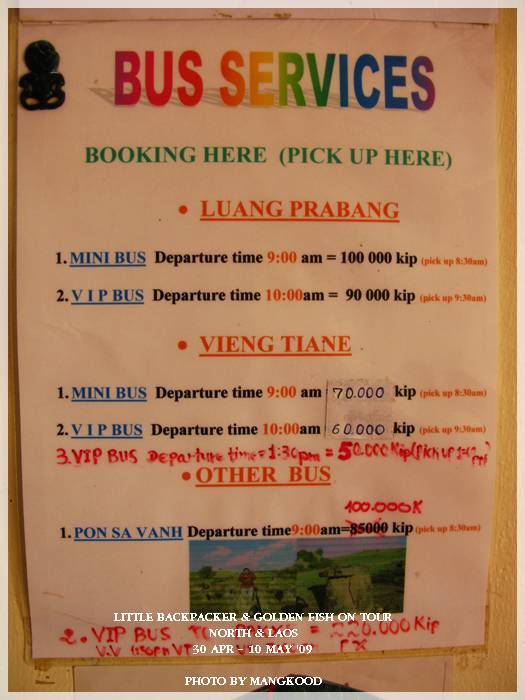 BUS SERVICES
BOOKING HERE (PICK UP HERE)
• LUANG PRABANG
1. MINI BUS Departure time 9:00 am = 100 000 kip (pick up 8:30am)
2. V I P BUS Departure time 10:00am = 90 000 kip (pick up 9:30am)
• VIENG TIANE
1. MINI BUS Departure time 9:00 am 70.000 kip (pick up 8:30am)
2. V I P BUS Departure time 10:00am 60.000 kip (pick up 9:30am)
3. VIP BUS Departure time = 1:30pm = 50.000 Kip (pick up
• OTHER BUS
100.000K
1. PON SA VANH Departure time 9:00am= 85000 kip (pick up 8:30am)
LITTLE BACKPACKER & GOLDEN FISH ON TOUR
2. VIP BUS = 220.000 Kip
NORTH & LAOS
30 APR - 10 MAY '09
PHOTO BY MANGKOOD